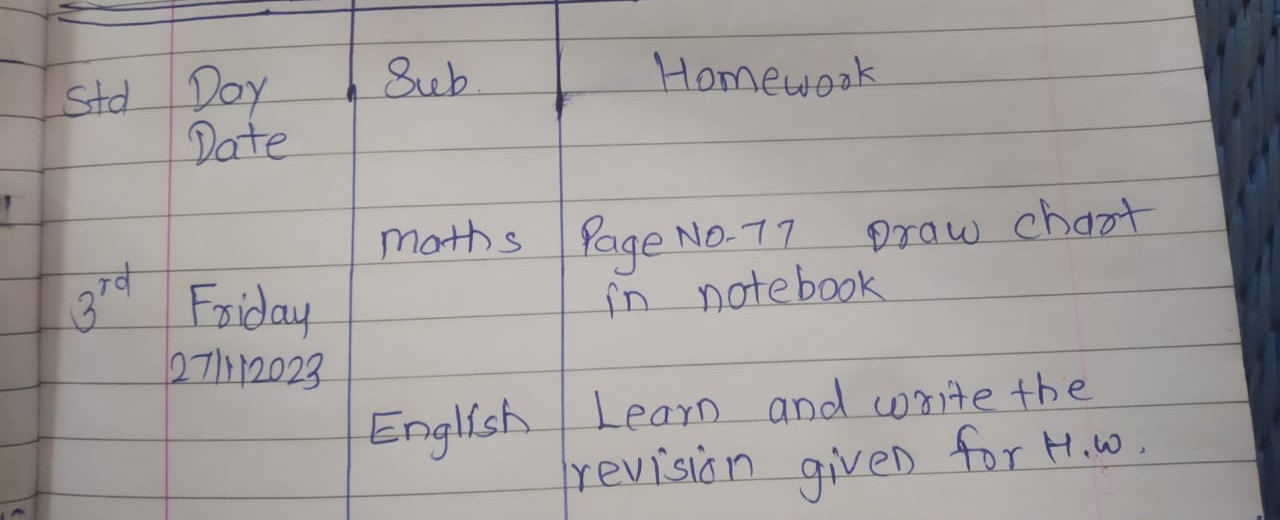 Std Day Sub. Homework
Date
maths Page No-77 Draw chart
3rd Friday in notebook
27/1/2023
English Learn and write the
revision given for H.W.